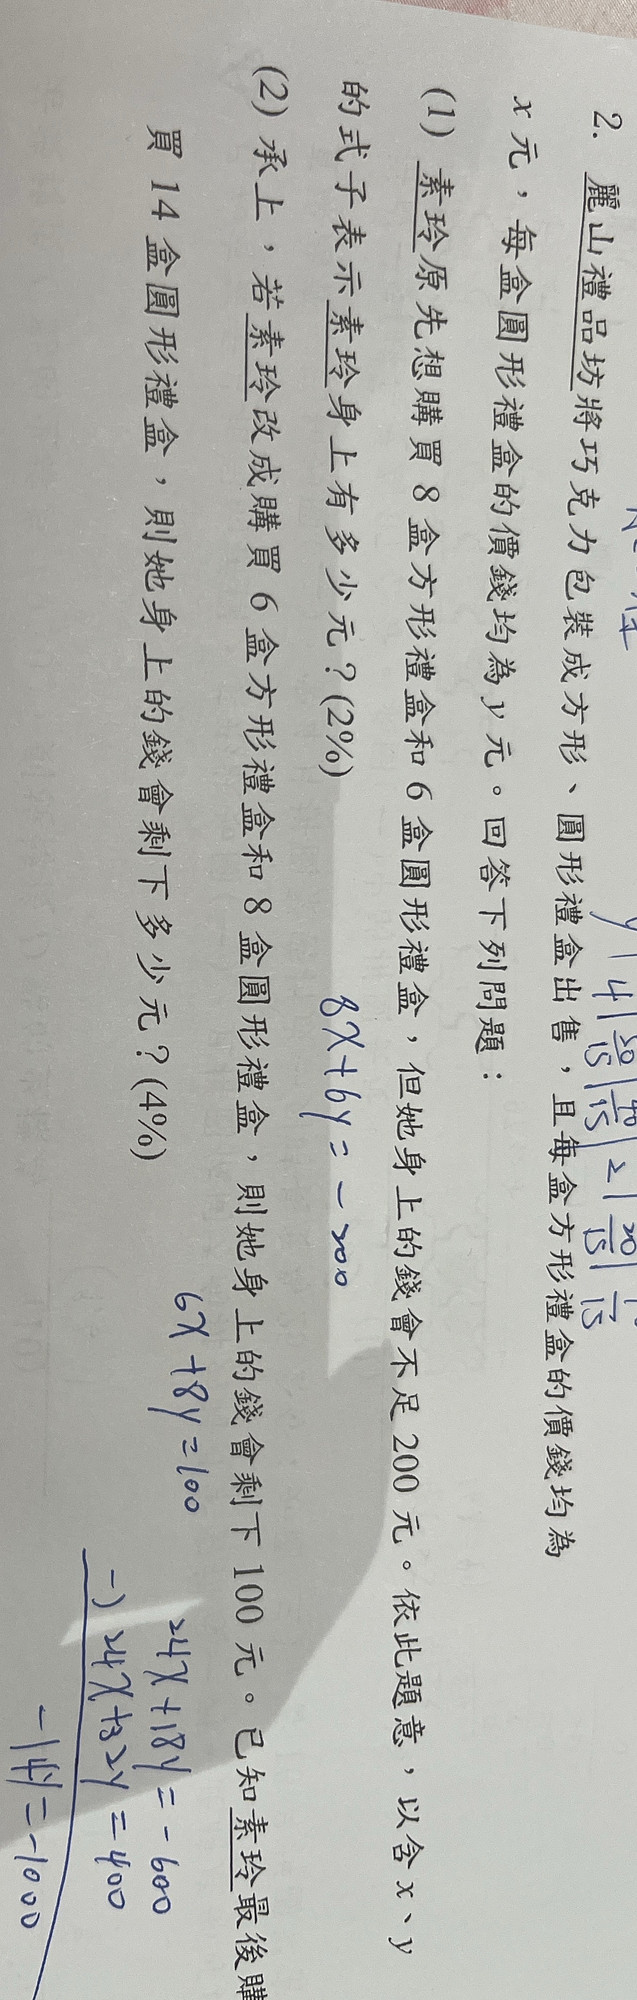 y | 4 | 50/15 | 40/15 | 2 | 20/15 |
2. 麗山禮品坊將巧克力包裝成方形、圓形禮盒出售，且每盒方形禮盒的價錢均為
x 元，每盒圓形禮盒的價錢均為 y 元。回答下列問題：
(1) 素玲原先想購買 8 盒方形禮盒和 6 盒圓形禮盒，但她身上的錢會不足 200 元。依此題意，以含 x、y
的式子表示素玲身上有多少元？(2%)
8x+6y=-200
(2) 承上，若素玲改成購買 6 盒方形禮盒和 8 盒圓形禮盒，則她身上的錢會剩下 100 元。已知素玲最後購
買 14 盒圓形禮盒，則她身上的錢會剩下多少元？(4%)
6x+8y=100
24x+18y=-600
-) 24x+32y=400
-14y=-1000